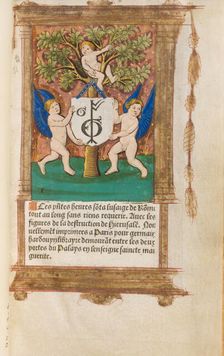 Les p̄ntes heures sōt a lusaige de Rōme
tout au long sans riens requerir. Auec les
figures de la destruction de Hierusalē. Nou
uellemēt imprimees a Paris pour germain
hardouyn libraire demourāt entre les deux
portes du Palays en lenseigne saincte mar
guerite.